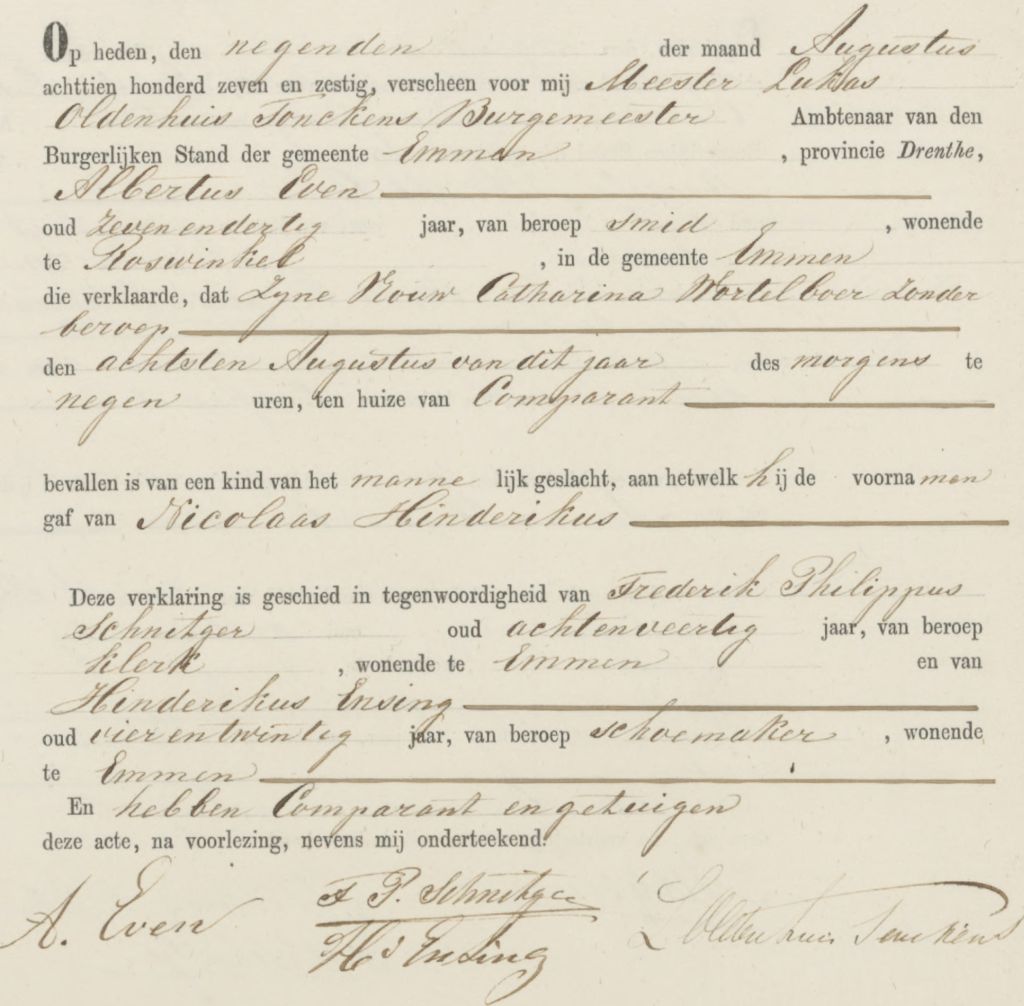 Op heden, den negenden der maand Augustus
achttien honderd zeven en zestig, verscheen voor mij Meester Lukas
Oldenhuis Tonckens Burgemeester Ambtenaar van den
Burgerlijken Stand der gemeente Emmen, provincie Drenthe,
Albertus Even
oud zevenendertig jaar, van beroep smid, wonende
te Roswinkel, in de gemeente Emmen
die verklaarde, dat Zyne Vrouw Catharina Wortelboer zonder
beroep
den achtsten Augustus van dit jaar des morgens te
negen uren, ten huize van Comparant
bevallen is van een kind van het mannelijk geslacht, aan hetwelk hij de voornamen
gaf van Nicolaas Hinderikus
Deze verklaring is geschied in tegenwoordigheid van Frederik Philippus
Schnitger oud achtenveertig jaar, van beroep
klerk, wonende te Emmen en van
Hinderikus Ensing
oud vierentwintig jaar, van beroep schoemaker, wonende
te Emmen
En hebben Comparant en getuigen
deze acte, na voorlezing, nevens mij onderteekend.
A. Even F P. Schnitger L Oldenhuis Tonckens
Hs Ensing